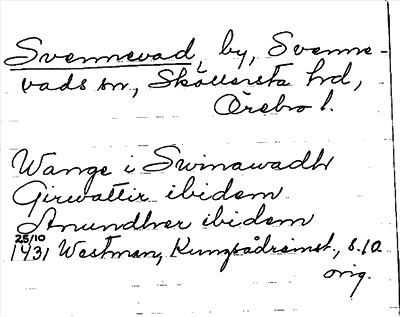 Svennevad, by, Svenne-
vads sn., Sköllersta hrd,
Örebro l.
Wange i Swinawadh
Girwattir ibidem
Anundher ibidem
25/10
1431 Westman, Kungsådramst., s. 10
orig.